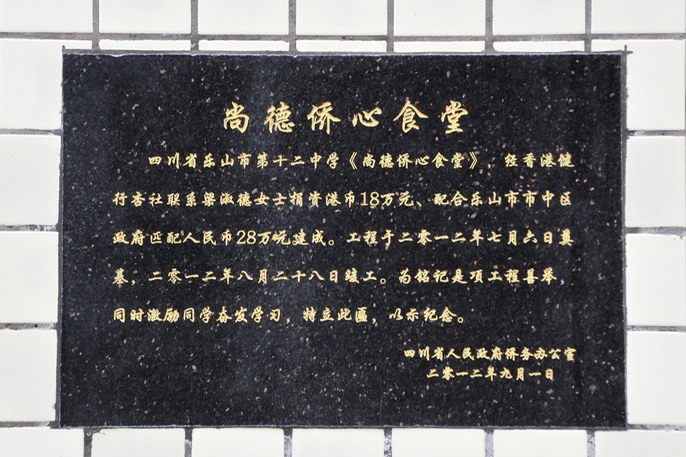 尚德侨心食堂
四川省乐山市第十二中学《尚德侨心食堂》，经香港健
行杏社联系梁淑德女士捐资港币18万元、配合乐山市市中区
政府匹配人民币28万元建成。工程于二零一二年七月六日奠
基，二零一二年八月二十八日竣工。为铭记是项工程善举，
同时激励同学奋发学习，特立此匾，以示纪念。
四川省人民政府侨务办公室
二零一二年九月一日